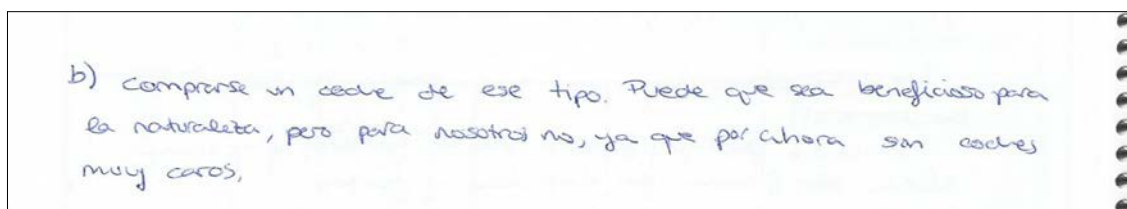 b) comprarse un coche de ese tipo. Puede que sea beneficioso para
la naturaleza, pero para nosotros no, ya que por ahora son coches
muy caros,